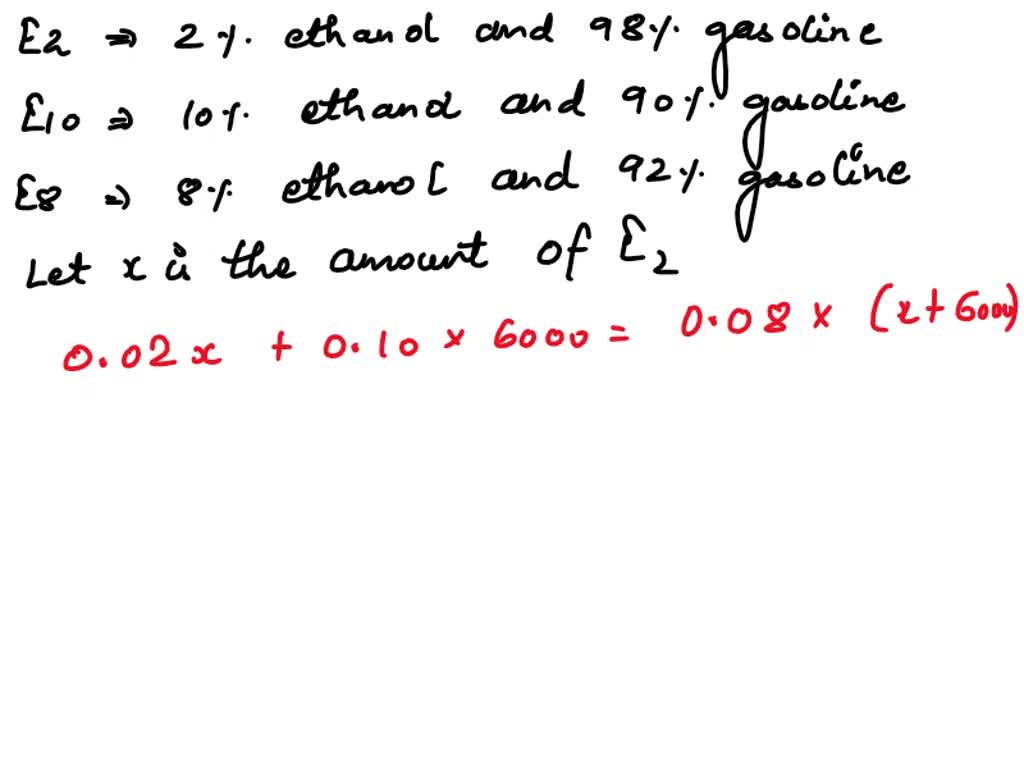 E2 ⇒ 2%. ethanol and 98%. gasoline
E10 ⇒ 10%. ethanol and 90%. gasoline
E8 ⇒ 8%. ethanol and 92%. gasoline
Let x is the amount of E2
0.02x + 0.10 × 6000 = 0.08 × (x + 6000)